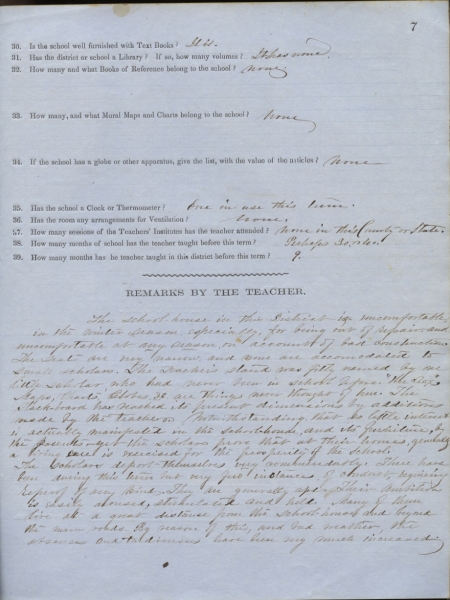 7
30. Is the school well furnished with Text Books? It is.
31. Has the district or school a Library? If so, how many volumes? It has none.
32. How many and what Books of Reference belong to the school? none
33. How many, and what Mural Maps and Charts belong to the school? none
34. If the school has a globe or other apparatus, give the list, with the value of the articles? none
35. Has the school a Clock or Thermometer? One in use this term.
36. Has the room any arrangements for Ventilation? None.
37. How many sessions of the Teachers' Institutes has the teacher attended? None in this County or State.
38. How many months of school has the teacher taught before this term? Perhaps 30,
39. How many months has he taught in this district before this term? 9.
REMARKS BY THE TEACHER.
The school house in this District is uncomfortable
in the winter season, especially, for being out of repair and
uncomfortable at any season, on account of bad construction.
The seats are very narrow, and none are accomodated to
small scholars. The teacher's stand was fitly named by one
little scholar who had never been in school before.
Maps, Charts, Globes, &c are things never thought of here. The
black-board has reached its present dimensions by additions
made by the teacher. Notwithstanding that so little interest
is actually manifested in the school house, and its furniture, by
the yet the scholars prove that at their homes, generally
a living care is exercised for the prosperity of the school.
The Scholars deport themselves very commendably. There have
been during this term but very few instances of requiring
reproof of any kind. They are generally apt. Their ambition
is easily aroused, stimulated and guided. Many of them
live at a great distance from the school house and beyond
the main roads. By reason of this, and bad weather, the
absence and tardinesses have been very much increased